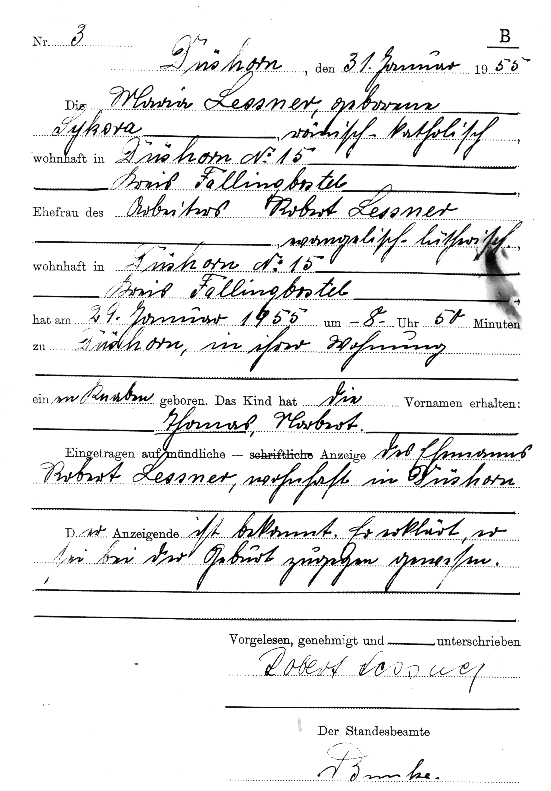 B
Nr. 3
Düshorn, den 31. Januar 1955
Die Maria Lessner, geborene
Sykora, römisch-katholisch,
wohnhaft in Düshorn No. 15
Kreis Fallingbostel,
Ehefrau des Arbeiters Robert Lessner
, evangelisch-lutherisch,
wohnhaft in Düshorn No. 15
Kreis Fallingbostel
hat am 29. Januar 1955 um -8- Uhr 50 Minuten
zu Düshorn, in ihrer Wohnung
einen Knaben geboren. Das Kind hat die Vornamen erhalten:
Thomas, Norbert.
Eingetragen auf mündliche — schriftliche Anzeige des Ehemanns
Robert Lessner, wohnhaft in Düshorn
Der Anzeigende ist bekannt. Er erklärt, er
sei bei der Geburt zugegen gewesen.
Vorgelesen, genehmigt und unterschrieben
Robert Lessner
Der Standesbeamte